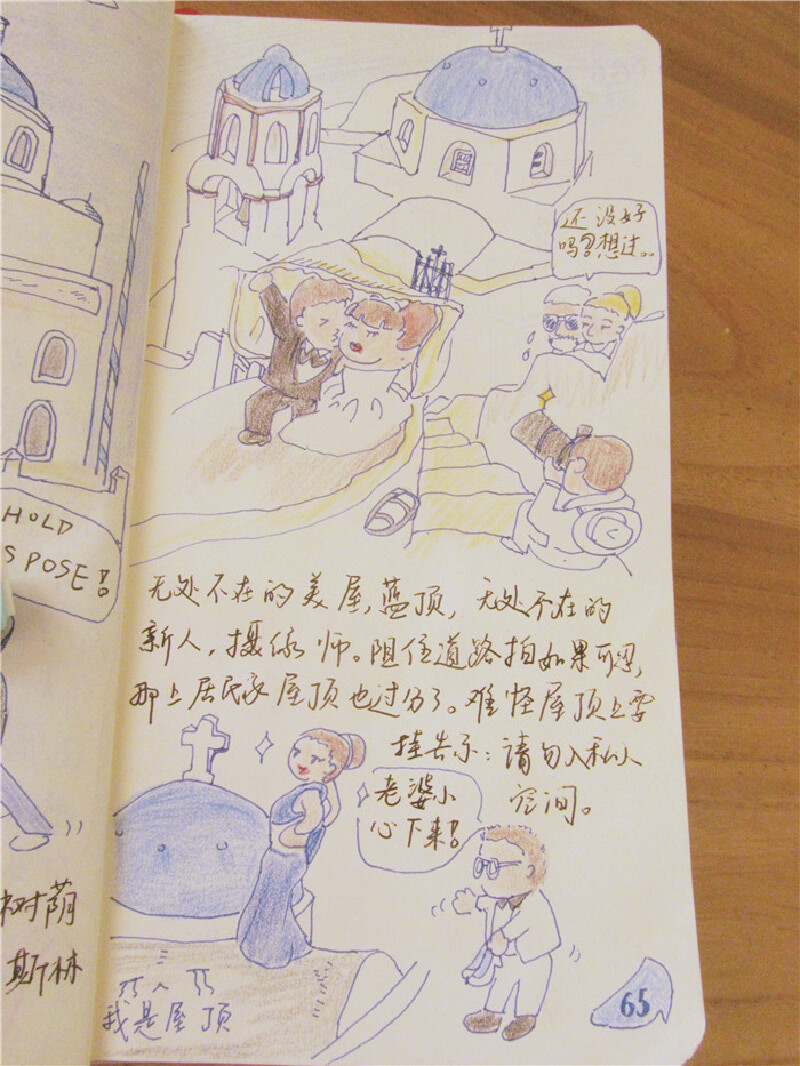 还没好
吗?想过..
HOLD
S POSE!
无处不在的美屋,蓝顶,无处不在的
新人,摄像师。阻住道路拍如果可忍,
那上居民家屋顶也过分了。难怪屋顶上要
挂告示:请勿入私人
空间。
老婆小
心下来!
树荫
斯林
我是屋顶
65